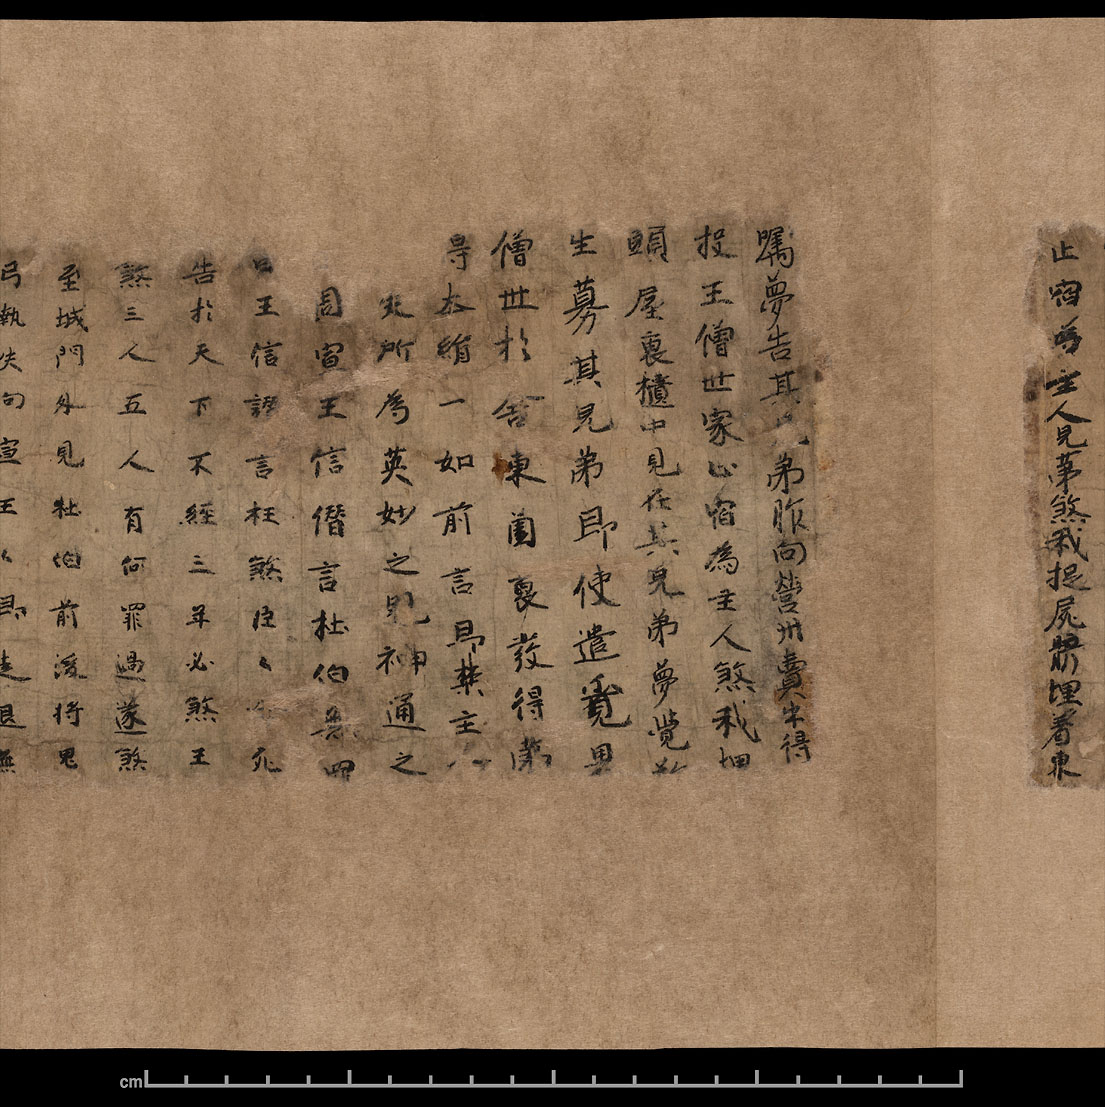 止宿爲主人兄苐煞我捉屍骸埋着東
嘱夢告其兄弟昨向營州賣米得
投王僧世家止宿為主人煞我埋
頭屋裏櫃中見在其兄弟夢覺
生募其兄弟即使遣覓
僧世於舍東園裏發得
尋太絹一如前言即禁主人
死所為英妙之鬼神通之
周宣王信僭言杜伯無
曰王信讒言枉煞臣〻今死
告於天下不經三年必煞王
煞三人五人有何罪過遂煞
至城門外見杜伯前後將鬼
弓執矢向宣王〻即走退無